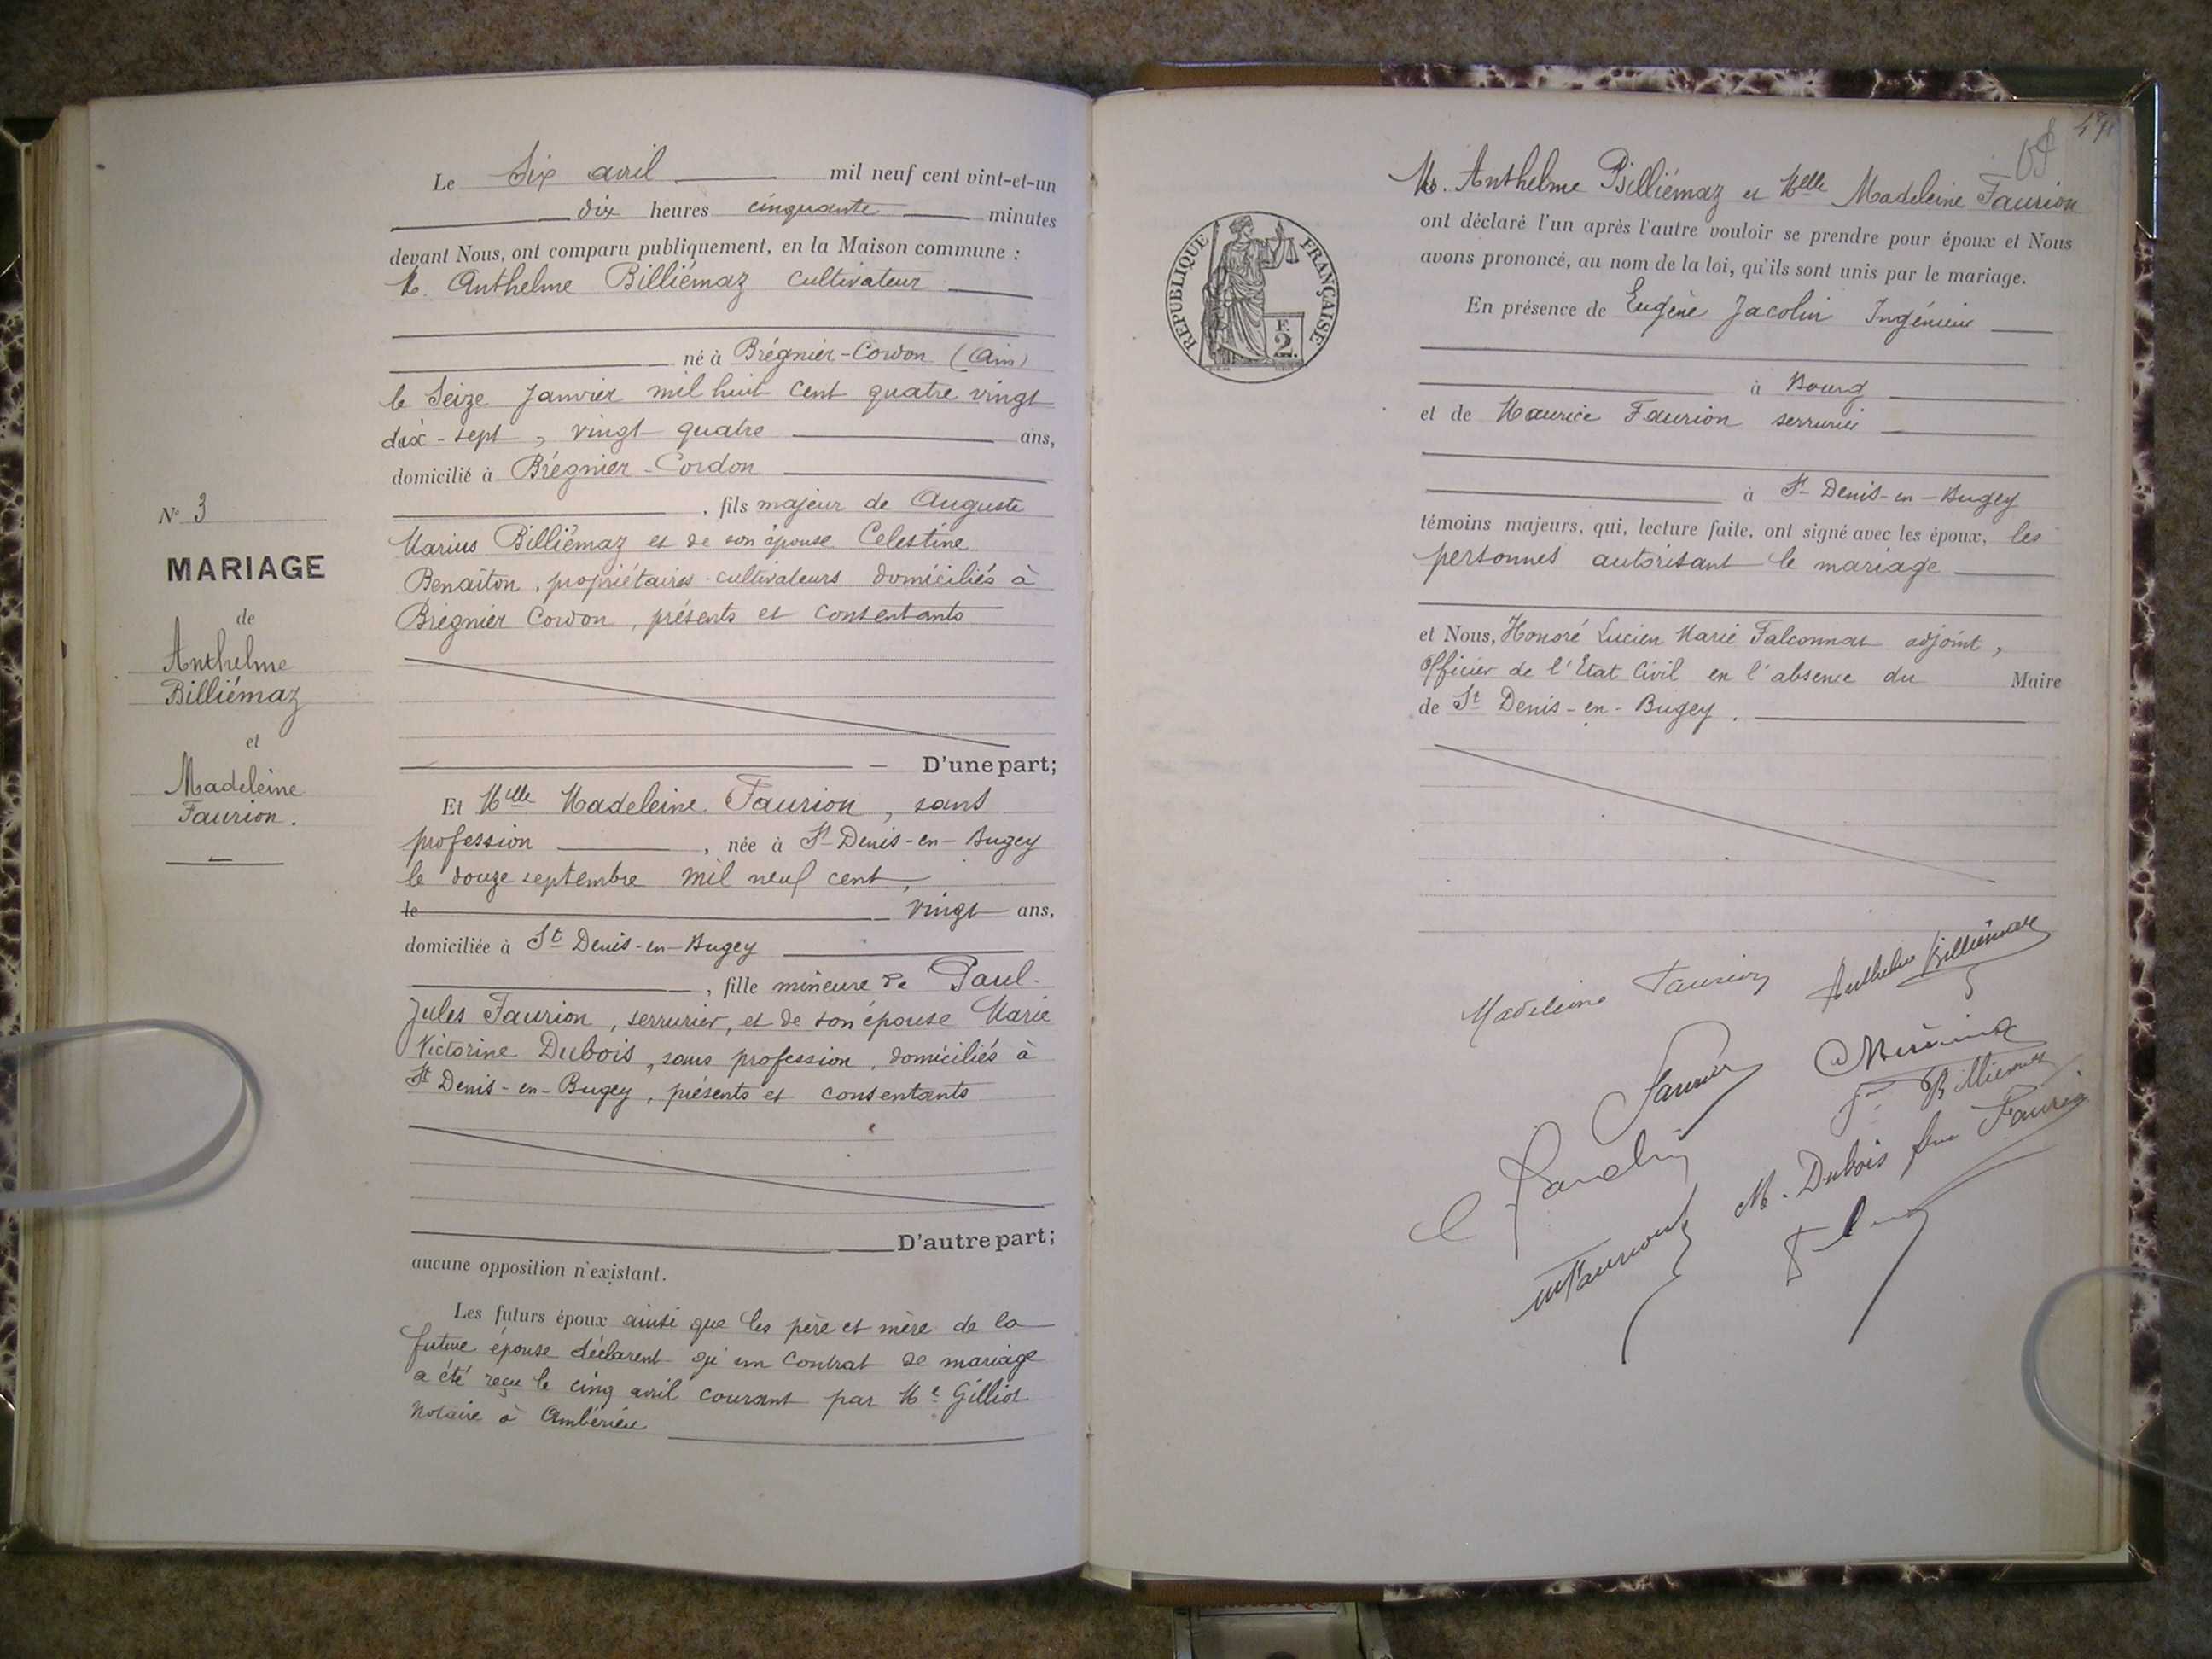 N° 3
MARIAGE
de
Anthelme
Billiémaz
et
Madeleine
Faurion.
Le Six avril mil neuf cent vint-et-un
dix heures cinquante minutes
devant Nous, ont comparu publiquement, en la Maison commune :
M. Anthelme Billiémaz cultivateur
né à Brégnier-Cordon (Ain)
le Seize Janvier mil huit cent quatre vingt
dix-sept, vingt quatre ans,
domicilié à Brégnier-Cordon
, fils majeur de Auguste
Marius Billiémaz et de son épouse Celestine
Benaîton, propriétaires-cultivateurs domiciliés à
Brégnier Cordon, présents et consentants
D'une part;
Et Melle Madeleine Faurion, sans
profession , née à St Denis-en-Bugey
le douze septembre mil neuf cent,
le vingt ans,
domiciliée à St Denis-en-Bugey
, fille mineure de Paul-
Jules Faurion, serrurier, et de son épouse Marie
Victorine Dubois, sans profession, domiciliés à
St Denis-en-Bugey, présents et consentants
D'autre part;
aucune opposition n'existant.
Les futurs époux ainsi que les père et mère de la
future épouse déclarent qu'un contrat de mariage
a été reçu le cinq avril courant par Me Gilliot
notaire à Ambérieu
M. Anthelme Billiémaz et Melle Madeleine Faurion
ont déclaré l'un après l'autre vouloir se prendre pour époux et Nous
avons prononcé, au nom de la loi, qu'ils sont unis par le mariage.
RÉPUBLIQUE FRANÇAISE
F.
2.
En présence de Eugène Jacolin Ingénieur
à Bourg
et de Maurice Faurion serrurier
à St Denis-en-Bugey
témoins majeurs, qui, lecture faite, ont signé avec les époux, les
personnes autorisant le mariage
et Nous, Honoré Lucien Marie Falconnat adjoint,
Officier de l'Etat Civil en l'absence du Maire
de St Denis-en-Bugey.
Madeleine Faurion
Anthelme Billiémaz
Faurion
Billiemaz
M. Dubois fme Faurion